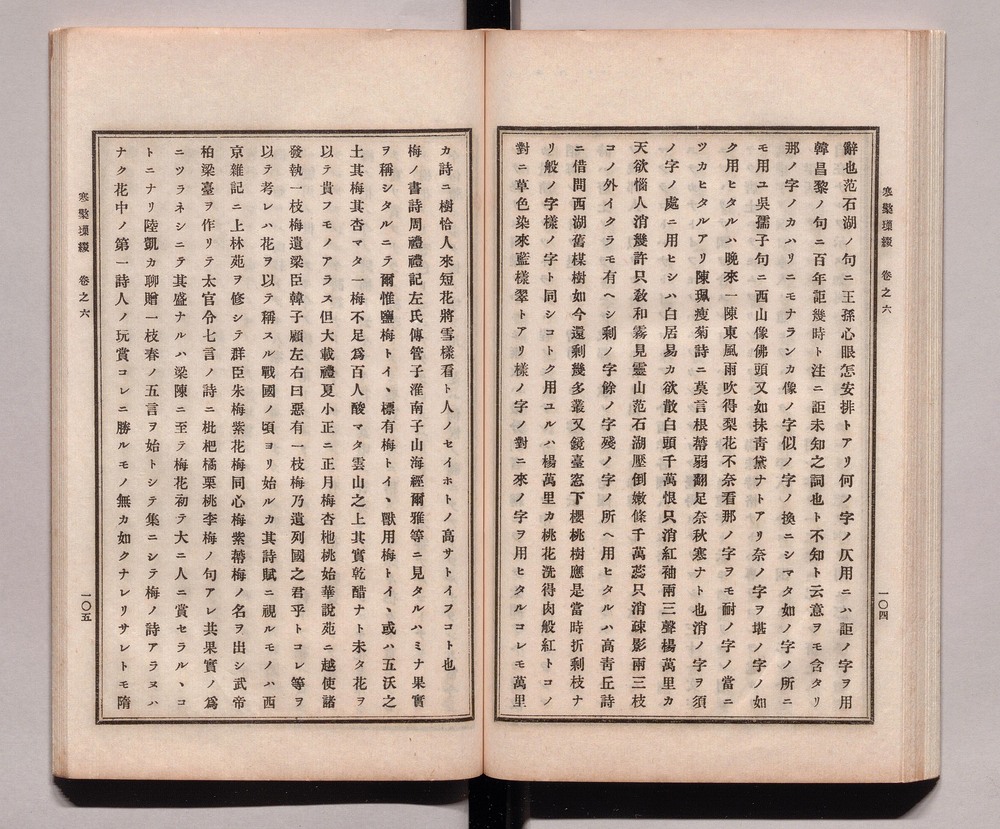 寒檠璅綴 卷之六
一〇四
辭也范石湖ノ句ニ王孫心眼怎安排トアリ何ノ字ノ仄用ニハ詎ノ字ヲ用
韓昌黎ノ句ニ百年詎幾時ト注ニ詎未知之詞也ト不知ト云意ヲモ含タリ
那ノ字ノカハリニモナランカ像ノ字似ノ字ノ換ニシマタ如ノ字ノ所ニ
モ用ユ吳孺子句ニ西山像佛頭又如抹靑黛ナトアリ奈ノ字ヲ堪ノ字ノ如
ク用ヒタルハ晚來一陳東風雨吹得梨花不奈看那ノ字ヲモ耐ノ字ノ當ニ
ツカヒタルアリ陳珮瘦菊詩ニ莫言根蔕弱翻足奈秋寒ナト也消ノ字ヲ須
ノ字ノ處ニ用ヒシハ白居易カ欲散白頭千萬恨只消紅袖兩三聲楊萬里カ
天欲惱人消幾許只敎和霧見靈山范石湖壓倒嫩條千萬蕊只消疎影兩三枝
コノ外イクラモ有ヘシ剩ノ字餘ノ字殘ノ字ノ所ヘ用ヒタルハ高靑丘詩
ニ借問西湖舊楳樹如今還剩幾多叢又鏡臺窓下櫻桃樹應是當時折剩枝ナ
リ般ノ字樣ノ字ト同シコトク用ユルハ楊萬里カ桃花洗得肉般紅トコノ
對ニ草色染來藍樣翠トアリ樣ノ字ノ對ニ來ノ字ヲ用ヒタルコレモ萬里
カ詩ニ樹恰人來短花將雪樣看ト人ノセイホトノ高サトイフコト也
梅ノ書詩周禮禮記左氏傳管子淮南子山海經爾雅等ニ見タルハミナ果實
ヲ稱シタルニテ爾惟鹽梅トイヽ標有梅トイヽ獸用梅トイヽ或ハ五沃之
土其梅其杏マタ一梅不足爲百人酸マタ雲山之上其實乾醋ナト未タ花ヲ
以テ貴フモノアラス但大載禮夏小正ニ正月梅杏杝桃始華說苑ニ越使諸
發執一枝梅遺梁臣韓子顧左右曰惡有一枝梅乃遺列國之君乎トコレ等ヲ
以テ考レハ花ヲ以テ稱スル戰國ノ頃ヨリ始ルカ其詩賦ニ視ルモノハ西
京雜記ニ上林苑ヲ修シテ群臣朱梅紫花梅同心梅紫蔕梅ノ名ヲ出シ武帝
柏梁臺ヲ作リテ太官令七言ノ詩ニ枇杷橘栗桃李梅ノ句アレ共果實ノ爲
ニツラネシニテ其盛ナルハ梁陳ニ至テ梅花初テ大ニ人ニ賞セラルヽコ
トニナリ陸凱カ聊贈一枝春ノ五言ヲ始トシテ集ニシテ梅ノ詩アラヌハ
ナク花中ノ第一詩人ノ玩賞コレニ勝ルモノ無カ如クナレリサレトモ隋
寒檠璅綴 卷之六
一〇五